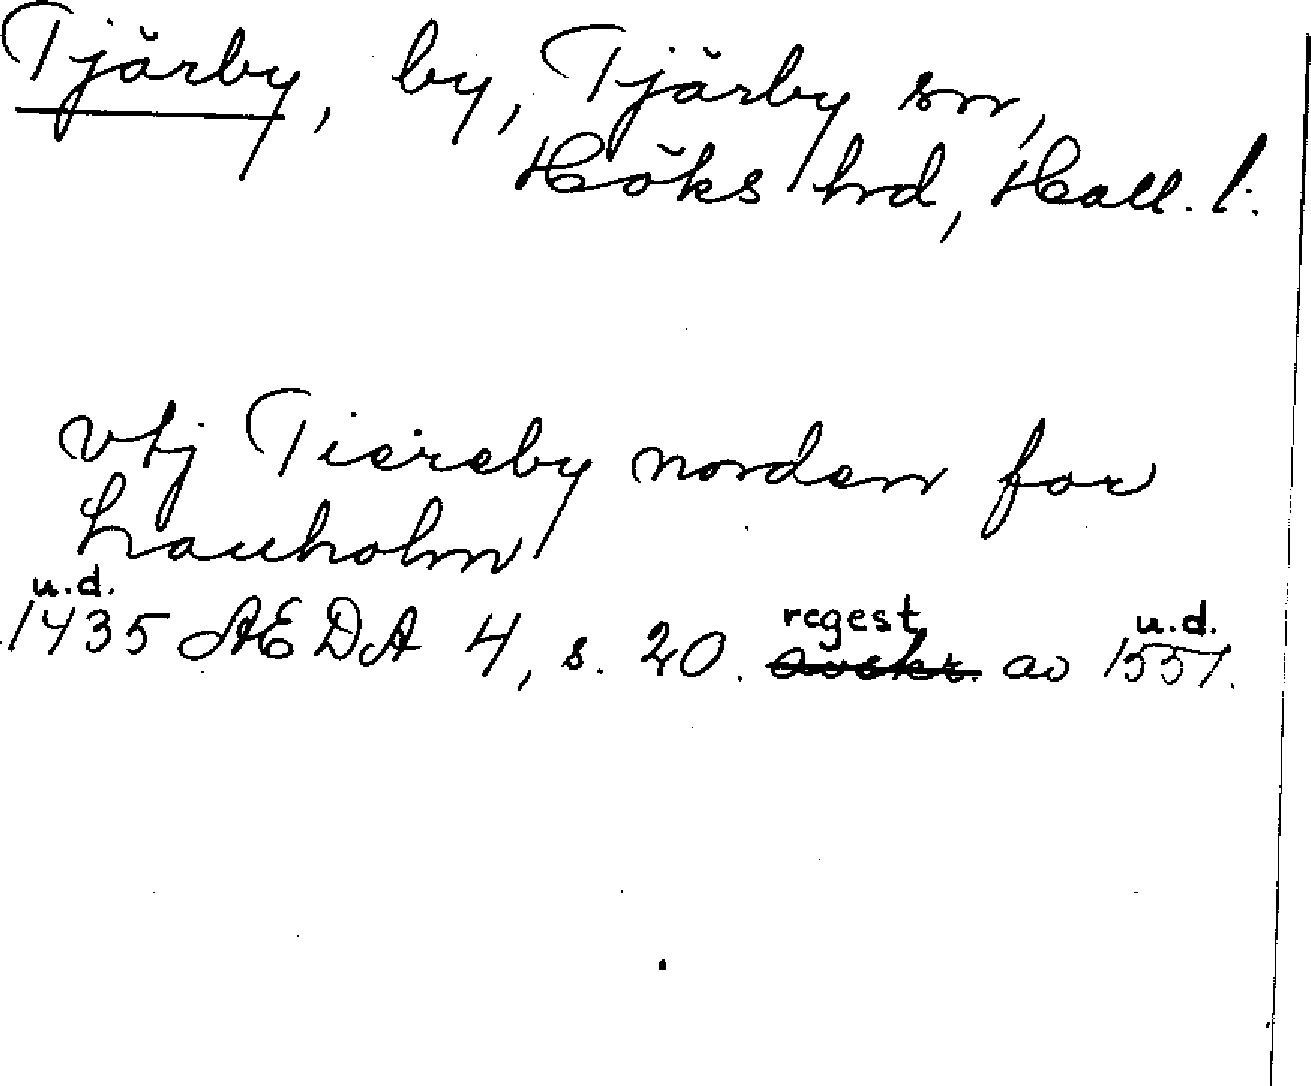 Tjärby, by, Tjärby sn,
Höks hrd, Hall. l.
vtj Tiereby norden for
Lauholm
u.d.
1435 ÆDA 4, s. 20. regest av 1551.
u.d.